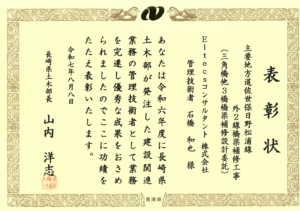 表彰状
主要地方道佐世保日野松浦線
外2線橋梁補修工事
(三角橋他3橋橋梁補修設計委託)
Eltecsコンサルタント 株式会社
管理技術者 石橋 和也 様
あなたは令和六年度に長崎県
土木部が発注した建設関連
業務の管理技術者として業務
を完遂し優秀な成果をおさめ
られましたのでここに功績を
たたえ表彰いたします。
令和七年八月八日
長崎県土木部長
山内 洋志